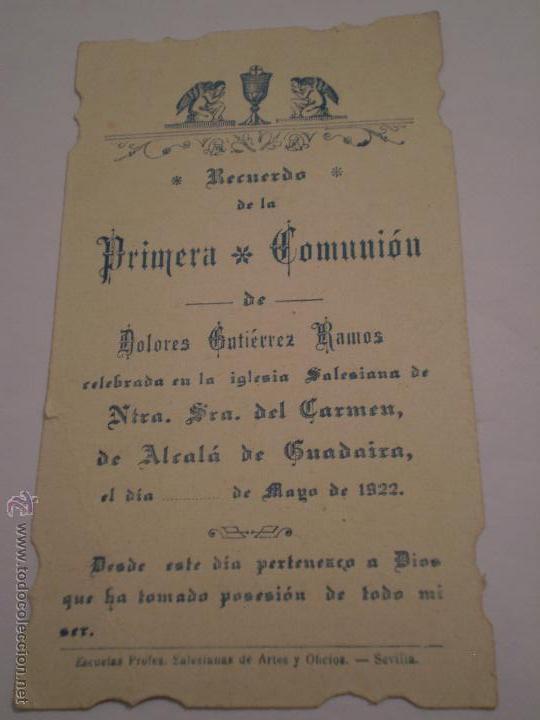 * Recuerdo *
de la
Primera * Comunión
— de —
Dolores Gutiérrez Ramos
celebrada en la iglesia Salesiana de
Ntra. Sra. del Carmen,
de Alcalá de Guadaira,
el día ............ de Mayo de 1922.
Desde este día pertenezco a Dios
que ha tomado posesión de todo mi
ser.
Escuelas Profes. Salesianas de Artes y Oficios. — Sevilla.
www.todocoleccion.net